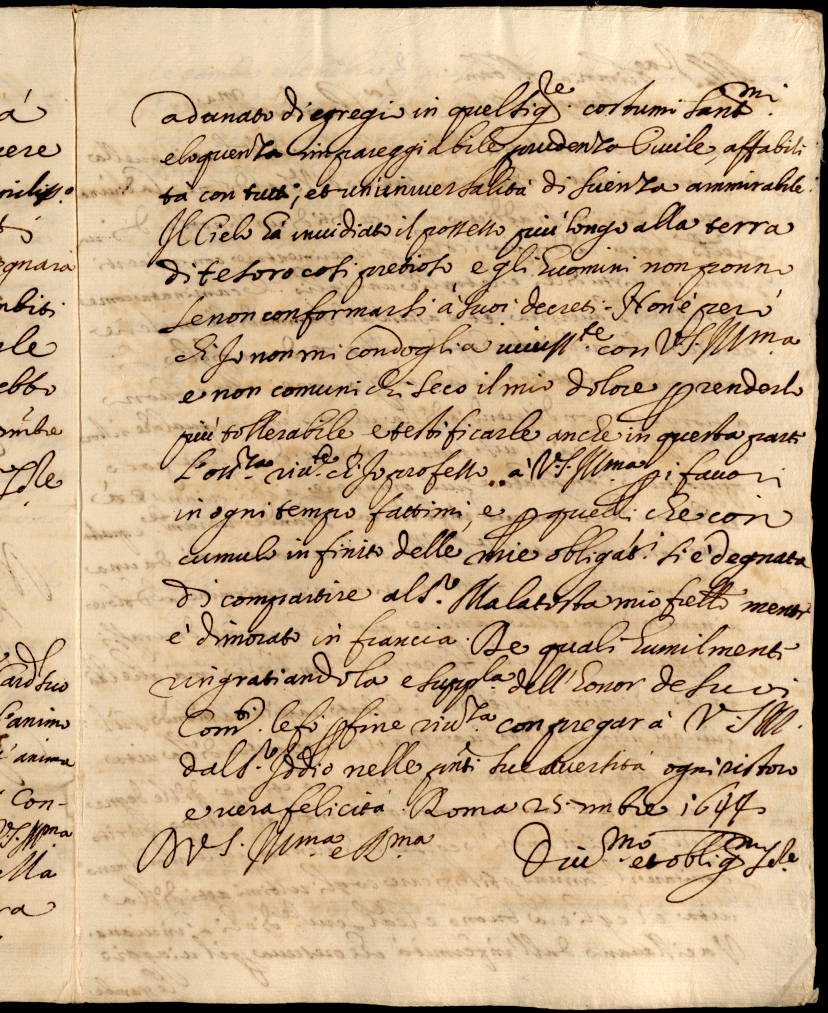 à
cere
ò
ognara
mbiti
ebbe
ombre
Ill.e
ard suo
l'animo
l'anima
con-
V.S. Illma
ella
ra
adunato di egregio in quel Sig.re costumi Sant.mi
eloquenza impareggiabile prudenza Civile, affabili
tà con tutti, et universalità di scienza ammirabile.
Il Cielo hà invidiato il possesso più longo alla terra
di tesoro così pretioso e gli huomini non ponno
se non conformarsi à suoi decreti. Non è però
ch'Io non mi condoglia con V.S. Illma
e non comunichi seco il mio dolore p renderlo
più tollerabile e testificarle anche in questa parte
ch'Io professo à V.S. Illma p i favori
in ogni tempo fattimi, e p quelli che con
cumulo infinito delle mie obligat.i si è degnata
di compartire al S.r Malatesta mio frello mentre
è dimorato in francia. De quali humilmente
ringratiandola e suppl.la dell'honor de suoi
Com.ti le fò p fine riv.za con pregar à V.S. Ill.
dal S.r Iddio nelle pnti sue avversità ogni ristoro
e vera felicità. Roma 25 mbre 1644
D V.S. Illma e Rma
Div.mo et oblig.mo